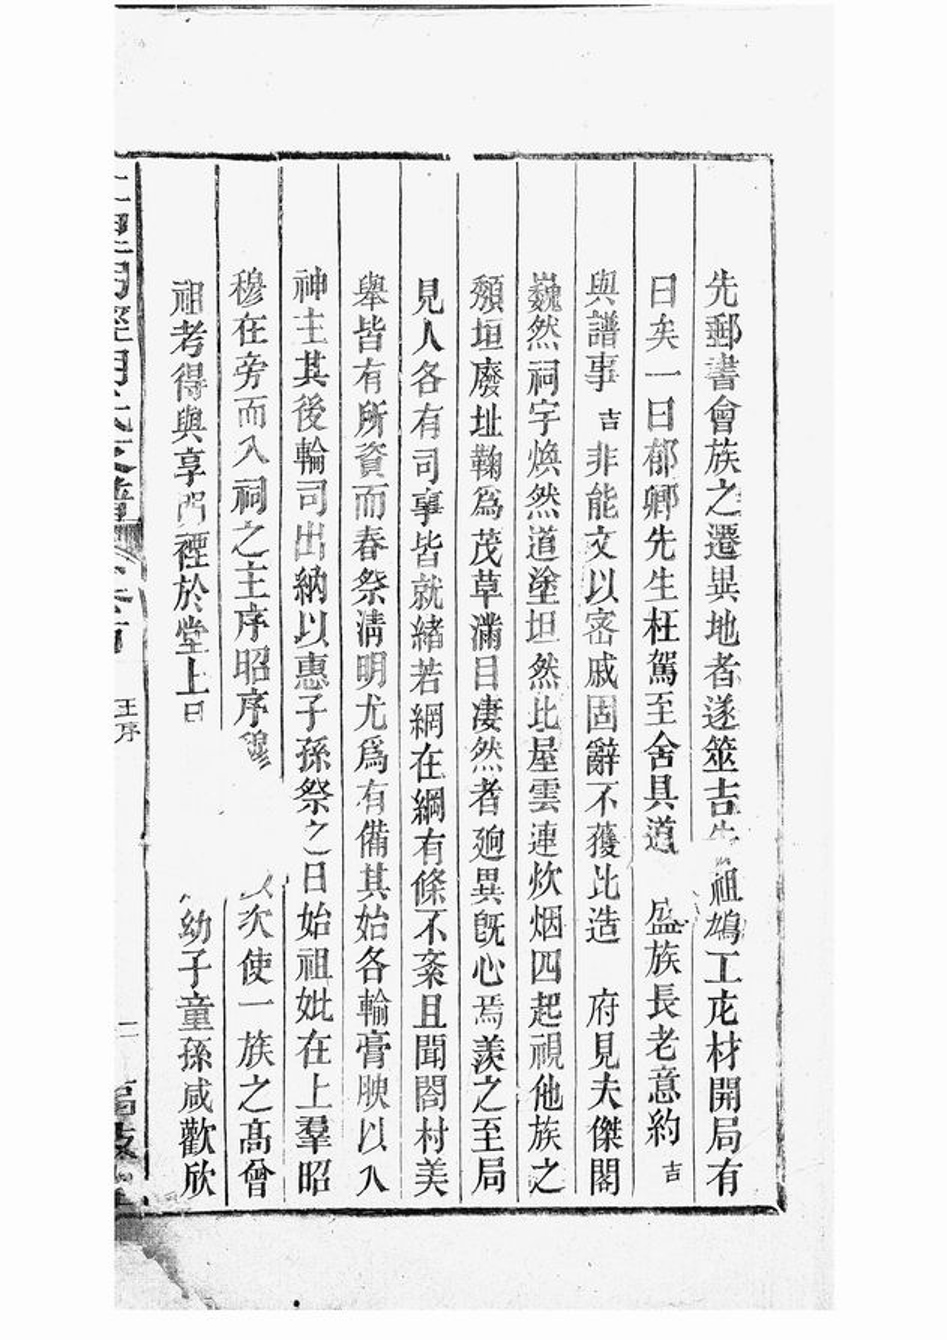 先郵書會族之遷異地者遂筮吉先祖鳩工庀材開局有
日矣一日郁卿先生枉駕至舍具道 盛族長老意約吉
與譜事吉非能文以宻戚固辭不獲比造 府見夫傑閣
巍然祠宇煥然道塗坦然比屋雲連炊烟四起視他族之
頽垣廢址鞠爲茂草滿目凄然者逈異旣心焉羨之至局
見人各有司事皆就緒若網在綱有條不紊且聞閤村美
舉皆有所資而春祭淸明尤爲有備其始各輸膏腴以入
神主其後輪司出納以惠子孫祭之日始祖妣在上羣昭
穆在旁而入祠之主序昭序穆 次使一族之高曾
祖考得與享 禋於堂上 幼子童孫咸歡欣
王序 二